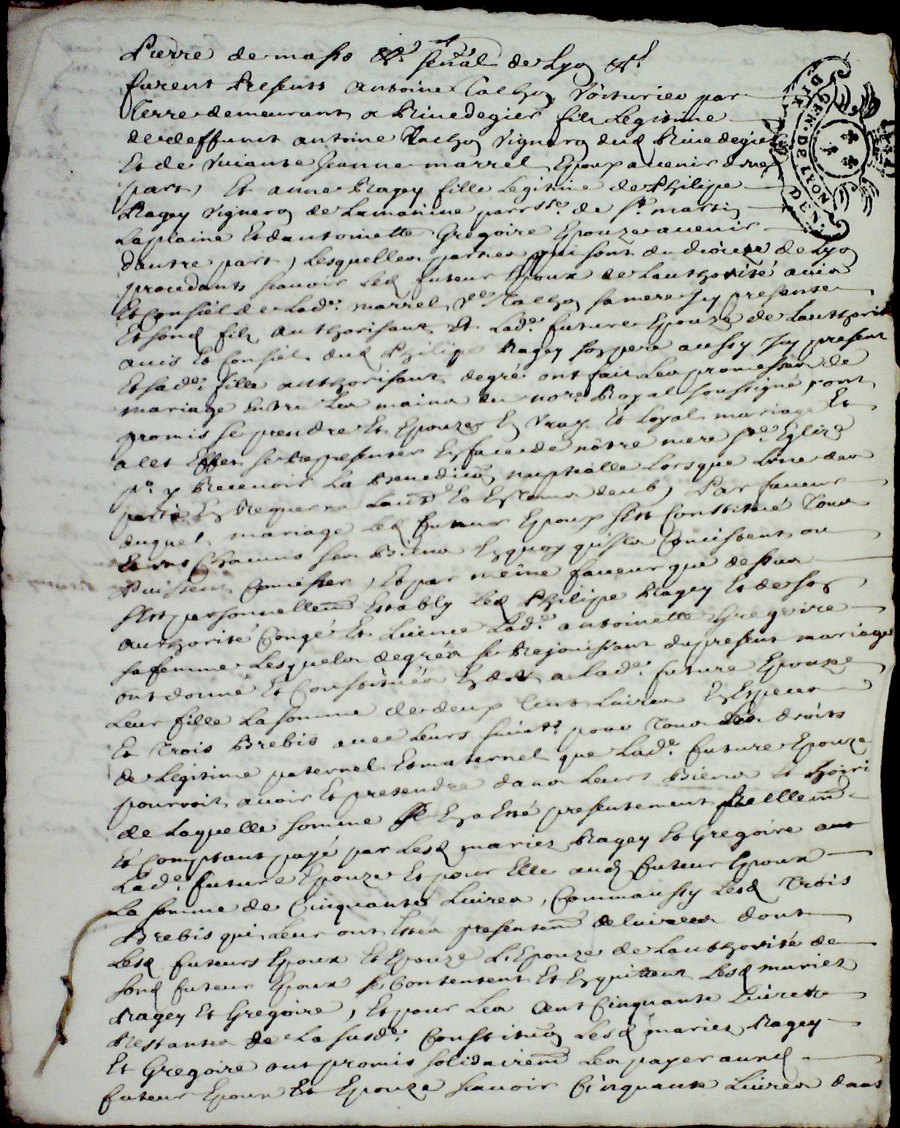 Pierre de masso &c. senal de Lyo &c.
furent presents antoine Vachõ Voiturier par
Terre demeurant a Rivedegier fils Legitime
de deffunt antoine Vachõ Vignerõ dud Rivedegier
Et de vivante Jeanne marrel Epoux avenir d'une
part, Et anne Ragey fille Legitime de Philipe
Ragey Vignerõ de Lamanine parrsse. de St. marti
Laplaine Et d'antoinette Gregoire Epouze avenir
d'autre part, Lesquelles parties qui sont du dioceze de Lyõ
procedants scavoir led futeur Epoux de L'authorité avis
Et conseil de Lad. marrel ve. Vachõ sa mere Icy presente
Et sond fils authorisant Et Lad. future Epouze de L'authorité
avis Et conseil dud Philipe Ragey sõ pere aussy Icy present
Et sad. fille authorisant degré ont fait Les promesses de
mariage Entre Les mains du nore. Royal soussigné sont
promis se prendre Et Epouzer En vray Et Loyal mariage Et
a cet Effet se representer En face de nôtre mere ste. Eglize
pr. y Recevoir La Benedicõ nuptialle Lorsque L'une des
parties En Requerra L'autre Et Estoma deub, Par faveur
duquel mariage Led futeur Epoux s'est Constitué Tous
Et uns Chacuns ses Biens Enquoy qu'ils Concistent ou
Puissent Concister, Et par même faveur que dessus
s'Est personnellemt Estably Led Philipe Ragey Et de sõ
authorité Congé Et Licence Lad. antoinette Gregoire
sa femme Lesquels degrés se Rejouissant du present mariage
ont donné Et Constitué En dot a Lad. future Epouze
Leur fille La somme de deux Cent Livres En Especes
Et Trois Brebis avec Leurs suivts. pour Tous Les droits
de Legitime paternel Et maternel que Lad. future Epouze
pourroit avoir Et pretendre dans Leurs Biens Et hoiri
de Laquelle somme Il En a Eté presentement Reellemt
Et Comptant payé par Lesd mariez Ragey Et Gregoire aux
Lad. future Epouze Et pour Elle aud futeur Epoux
La somme de Cinquante Livres, Comm'aussy Lesd Trois
Brebis qui Leur ont Eté presentemt delivrées dont
Lesd futeurs Epoux Et Epouze L'Epouze de L'authorité de
sond futeur Epoux se Contentent Et En quittent Lesd mariez
Ragey Et Gregoire, Et pour Les Cent Cinquante Livres
Restantes de La susd. Constitutiõ Lesd mariez Ragey
Et Gregoire ont promis solidairemt Les payer ausd
futeur Epoux Et Epouze scavoir Cinquante Livres dans
GER. DE LION